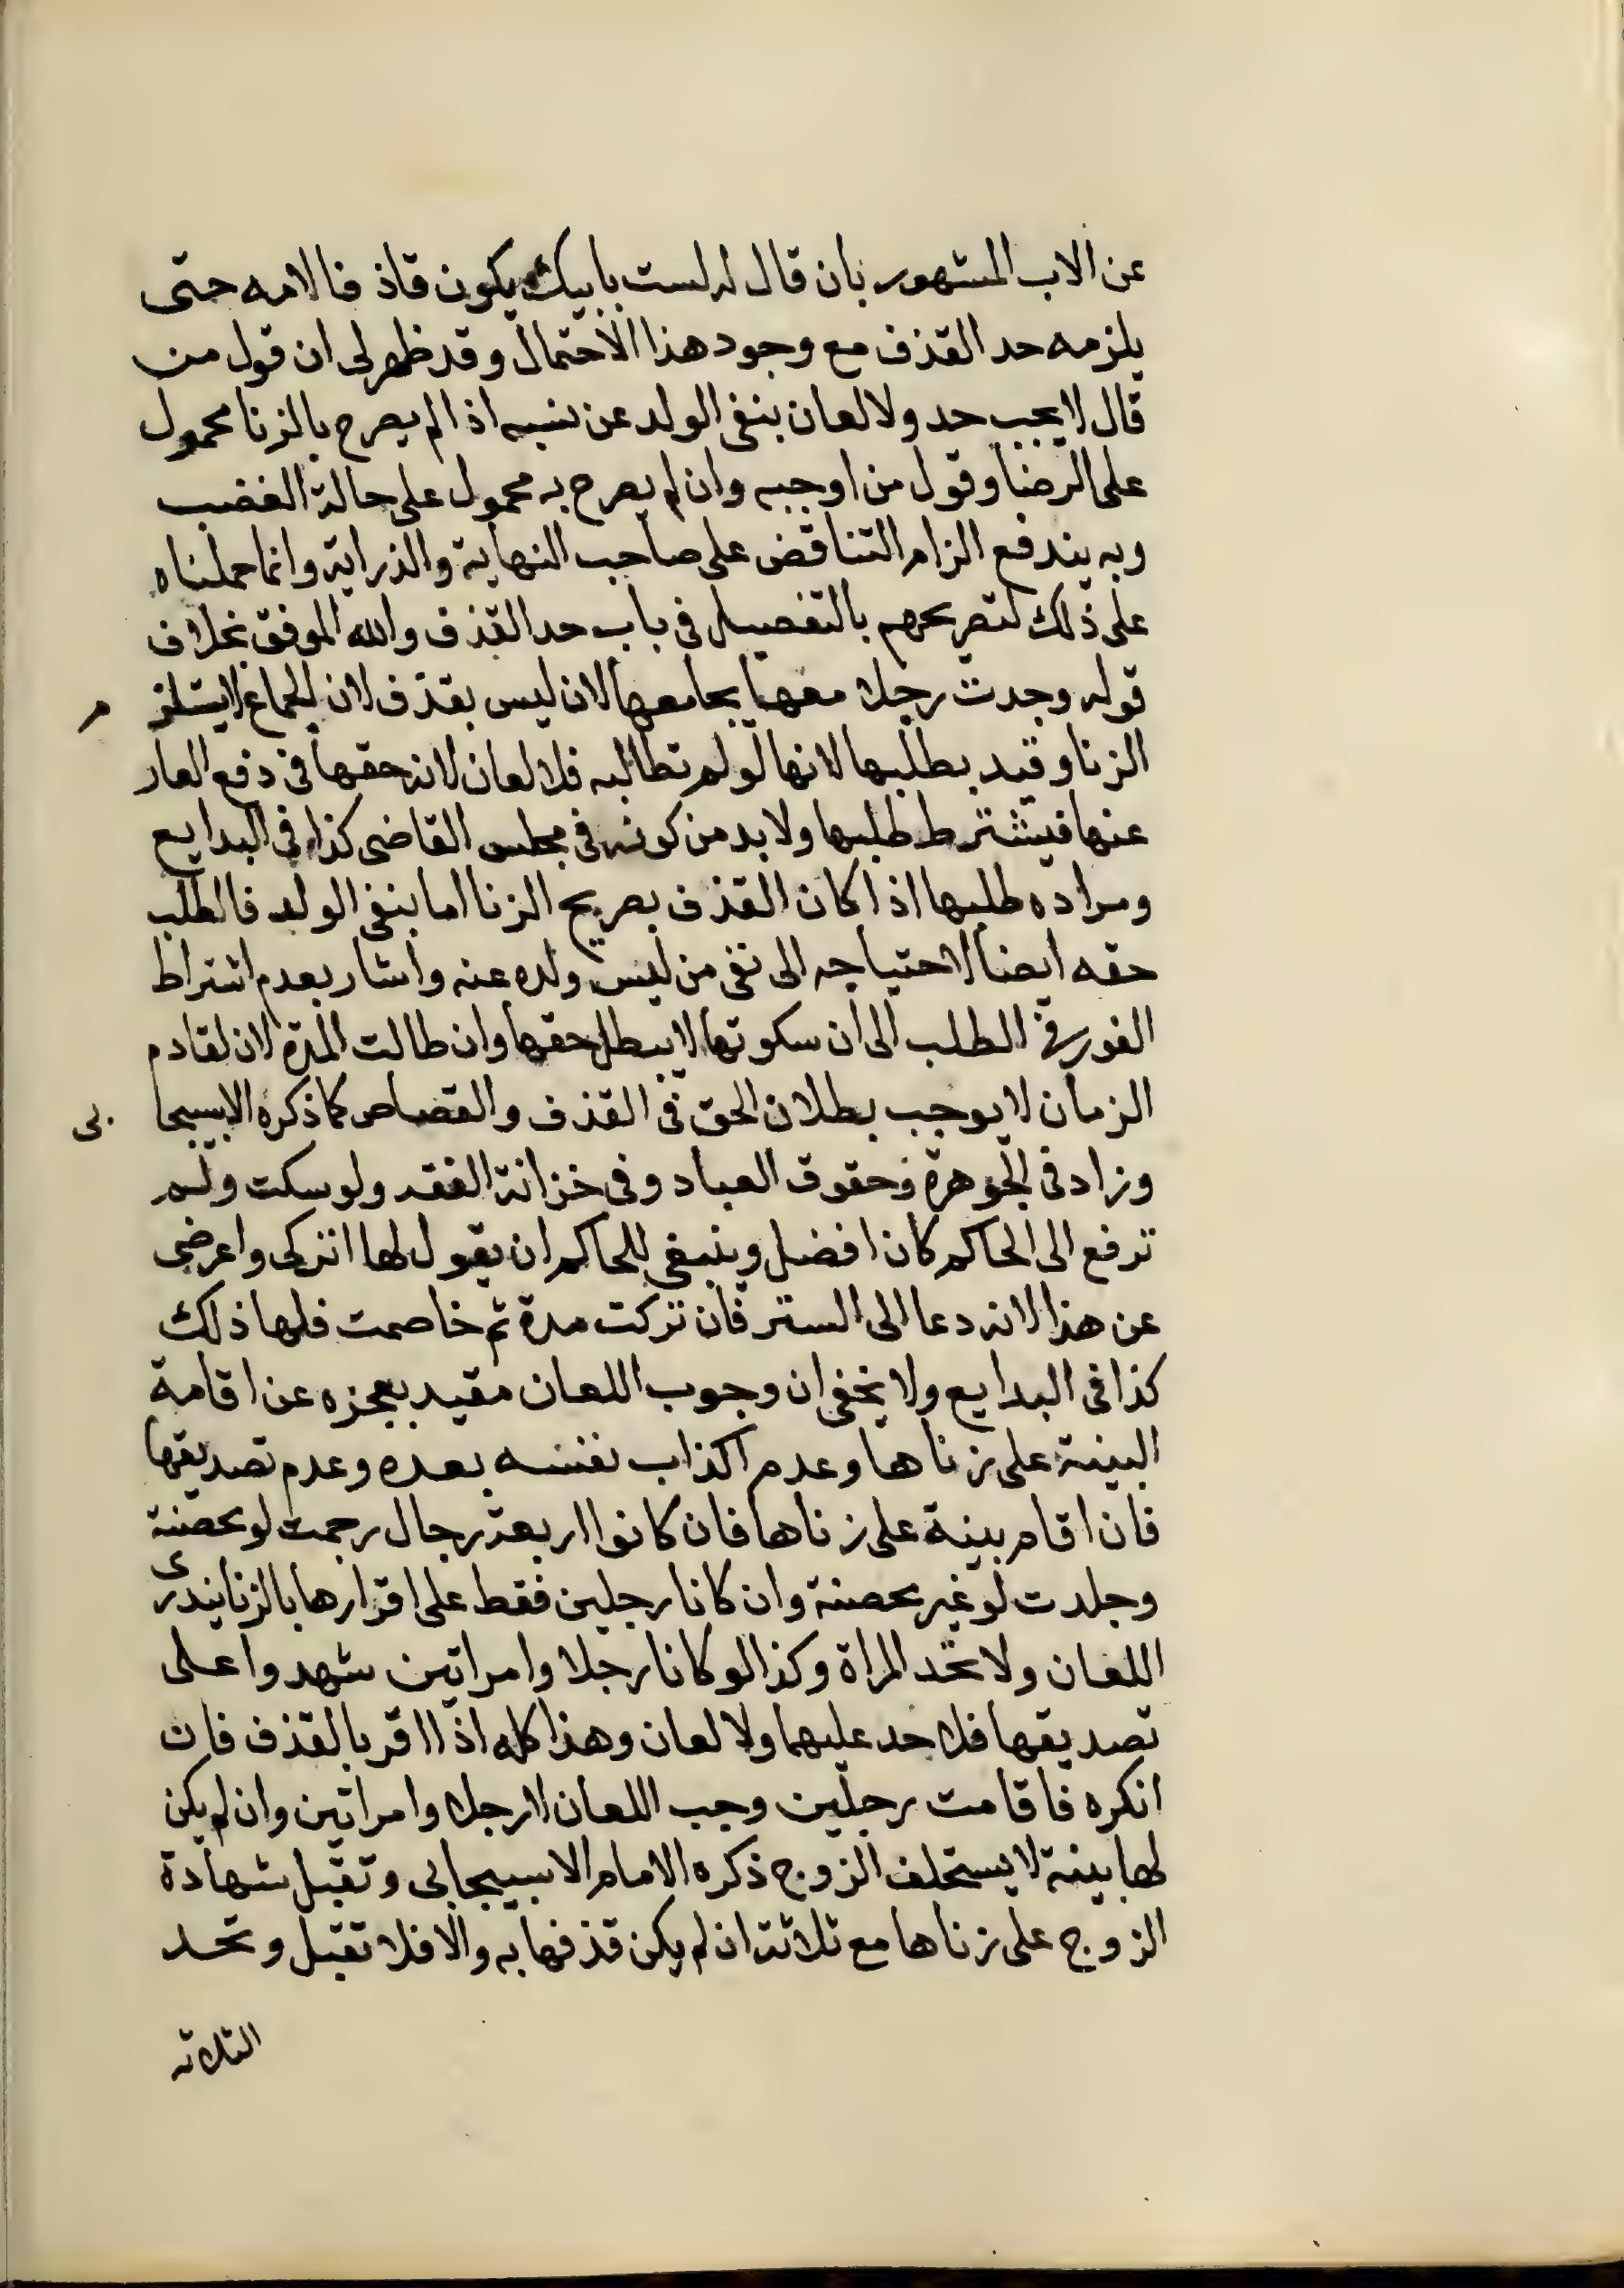 عن الاب المشهور بان قال له لست بابيك يكون قاذ فا لامه حتى
يلزمه حد القذف مع وجود هذا الاحتمال وقد ظهر لى ان قول من
قال لا يجب حد ولا لعان بنفى الولد عن نسبه اذا لم يصرح بالزنا محمول
على الرضا وقول من اوجبه وان لم يصرح به محمول على حالة الغضب
وبه يندفع الزام التناقض على صاحب النهاية والدراية وانما حملناه
على ذلك لتصريحهم بالتفصيل فى باب حد القذف والله الموفق بخلاف
قوله وجدت رجلا معها يجامعها لان ليس بقذف لان الجماع لا يستلز م
الزنا وقيد بطلبها لانها لو لم تطالبه فلا لعان لانه حقها فى دفع العار
عنها فيشترط طلبها ولا بد من كونه فى مجلس القاضى كذا فى البدايع
ومراده طلبها اذا كان القذف بصريح الزنا اما بنفى الولد فالطلب
حقه ايضا لاحتياجه الى نفى من ليس ولده عنه واشار بعدم اشتراط
الفور فى الطلب الى ان سكوتها لا يبطل حقها وان طالت المدة لان تقادم
الزمان لا يوجب بطلان الحق فى القذف والقصاص كما ذكره الاسبيجا بى
وزاد فى الجوهرة وحقوق العباد وفى خزانة الفقه ولو سكتت ولم
ترفع الى الحاكم كان افضل وينبغى للحاكم ان يقول لها اتركى واعرضى
عن هذا لانه دعا الى الستر فان تركت مدة ثم خاصمت فلها ذلك
كذا فى البدايع ولا يخفى ان وجوب اللعان مقيد بعجزه عن اقامة
البينة على زناها وعدم اكذاب نفسه بعده وعدم تصديقها
فان اقام بينة على زناها فان كانوا اربعة رجال رجمت لو محصنة
وجلدت لو غير محصنة وان كانا رجلين فقط على اقرارها بالزنا يندرى
اللعان ولا تحد المراة وكذا لو كانا رجلا وامراتين شهدوا على
تصديقها فلا حد عليهما ولا لعان وهذا كله اذا اقر بالقذف فان
انكره فاقامت رجلين وجب اللعان لا رجلا وامراتين وان لم يكن
لها بينة لا يستحلف الزوج ذكره الامام الاسبيجابى وتقبل شهادة
الزوج على زناها مع ثلاثة ان لم يكن قذفها به والا فلا تقبل وتحد
الثلاثه